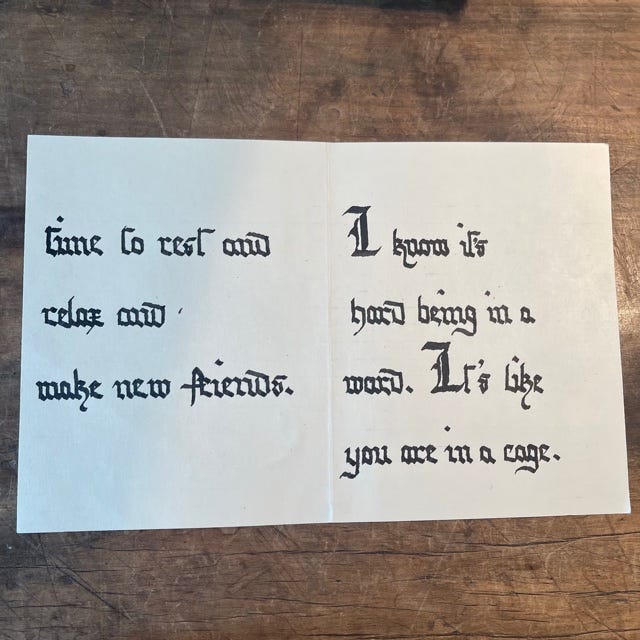 time to rest and
relax and
make new friends.
I know it's
hard being in a
ward. It's like
you are in a cage.